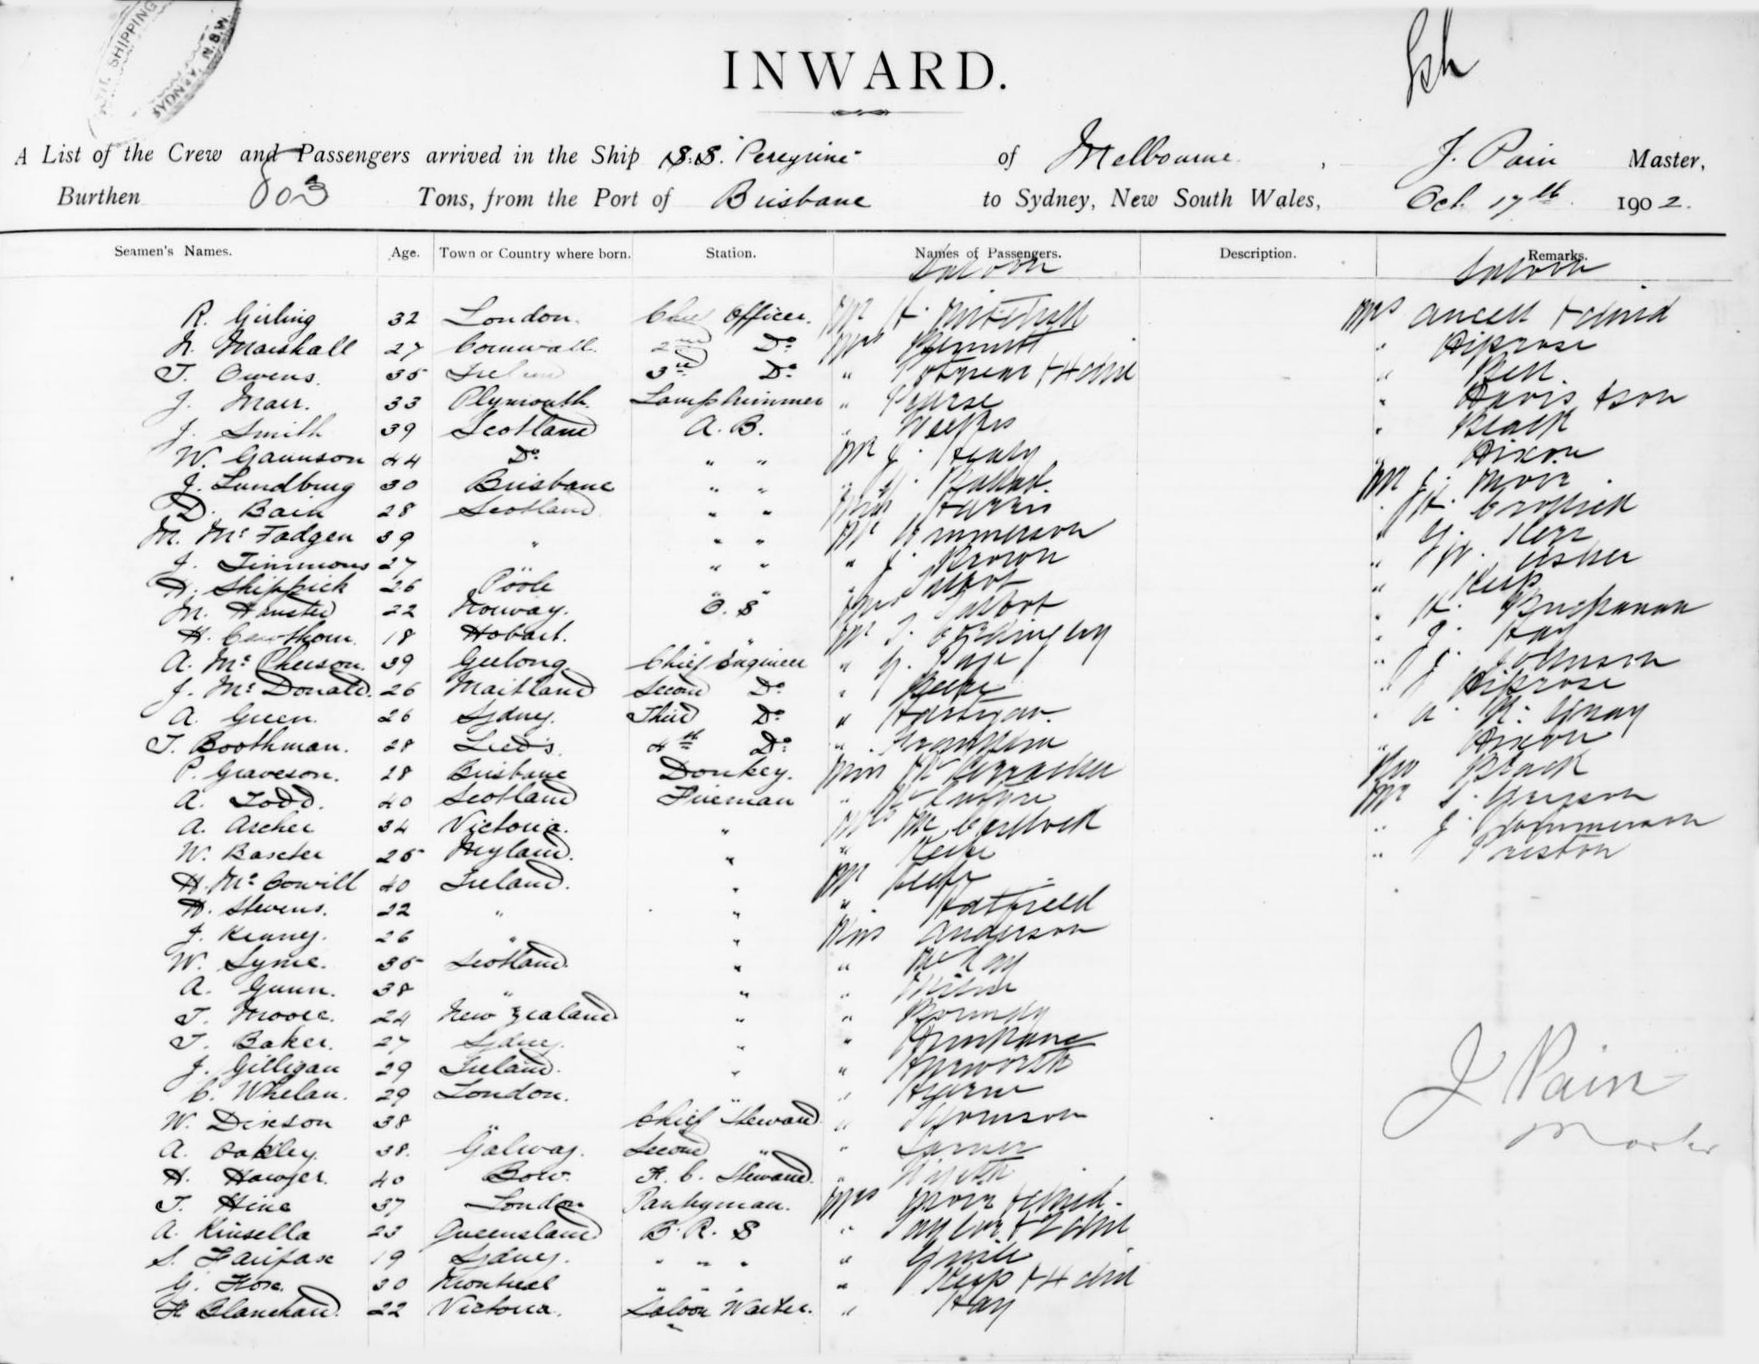 SHIPPING
SYDNEY, N.S.W.
INWARD.
A List of the Crew and Passengers arrived in the Ship S.S. Peregrine of Melbourne, J. Pain Master,
Burthen 803 Tons, from the Port of Brisbane to Sydney, New South Wales, Oct. 17th 1902.
Seamen's Names. Age. Town or Country where born. Station. Names of Passengers. Description. Remarks.
Saloon Saloon
R. Girling 32 London. Chief Officer. Mr H. Mitchell Mrs Ancell + child
N. Marshall 27 Cornwall. 2nd Do Mrs Bennett " Hiprose
T. Owens. 35 Ireland 3rd Do " + 4 child " Bell.
J. Marr. 33 Plymouth. Lamptrimmer " Pearse " Davis + son
J. Smith 39 Scotland A. B. " Weekes " Black
W. Gaunson 44 Do " " Mr J. Healy " Dixon
J. Lundburg 30 Brisbane " " " Mr J. Moir
D. Bain 28 Scotland " " Harris "
M. McFadgen 39 " " " Mr " G. Kerr
J. Timmons 27 " " " " J. Brown " W. Usher
H. Shippick 26 Poole " " " Talbot " Keep
M. 22 Norway. O. S Mrs Talbot " H. Buchanan
H. Cawthorn 18 Hobart. " " Mr T. " J. Hay
A. McPherson. 39 Geelong Chief Engineer " G. Page " J. Johnson
J. McDonald. 26 Maitland Second Do " " Hiprose
A. Green. 26 Sydney. Third Do " Hartigan. " A. Gray
T. Boothman. 28 Leeds. 4th Do " " Dixon
P. Graveson. 28 Brisbane Donkey. Miss Black
A. Todd. 40 Scotland Fireman " Mr
A. Archer 34 Victoria. " Mrs " J.
W. Baxter 25 " " Keefe " Preston
H. McCowill 40 Ireland. " Mr Keefe
H. Stevens. 22 " " " Hatfield
J. Kenny. 26 " " Miss Anderson
W. Syme. 35 Scotland. " " McKay
A. Gunn. 38 " " "
T. Moore. 24 New Zealand " "
T. Baker. 27 Sydney. " "
J. Gilligan 29 Ireland. " " Hepworth
C. Whelan. 29 London. " " Hearn
W. Dixson 38 " Chief Steward " Thomson
A. Oakley. 38. Galway. Second " "
H. Hawjer. 40 Bow. F. C. Steward. "
T. Hine 37 London Pantryman. Mrs Moir + child.
A. Kinsella 23 Queensland B. R. S " Taylor + 2 child
S. Fairfax 19 Sydney. " " " "
G. Hore. 30 Montreal " " " " Keep + 4 child
F. Blanchard. 22 Victoria. Saloon Waiter. " Hay
J Pain
Master